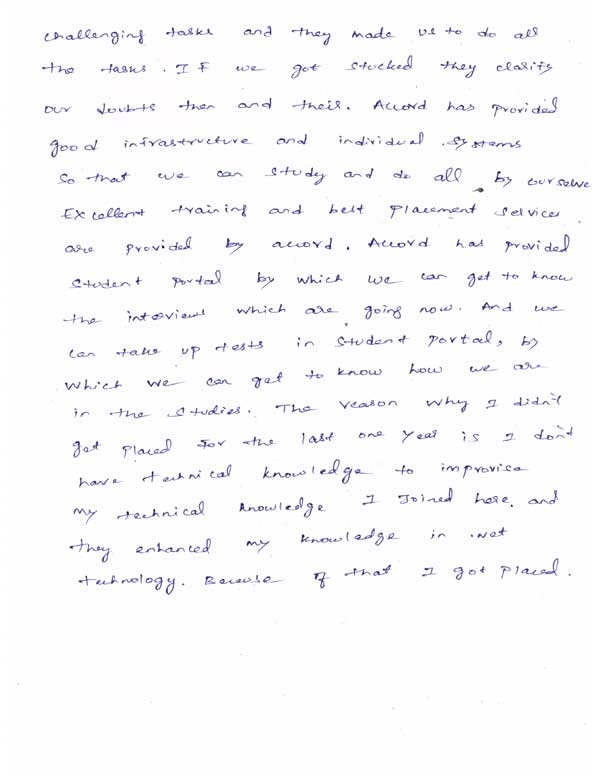 challenging tasks and they made us to do all
the tasks. If we got stucked they clarify
our doubts then and their. Accord has provided
good infrastructure and individual systems
so that we can study and do all by ourselve
Excellent training and best placement services
are provided by accord. Accord has provided
student portal by which we can get to know
the interviews which are going now. And we
can take up tests in student portal, by
which we can get to know how we are
in the studies. The reason why I didn't
get placed for the last one year is I don't
have technical knowledge to improvise
my technical knowledge I joined here. and
they enhanced my knowledge in .net
technology. Because of that I got placed.